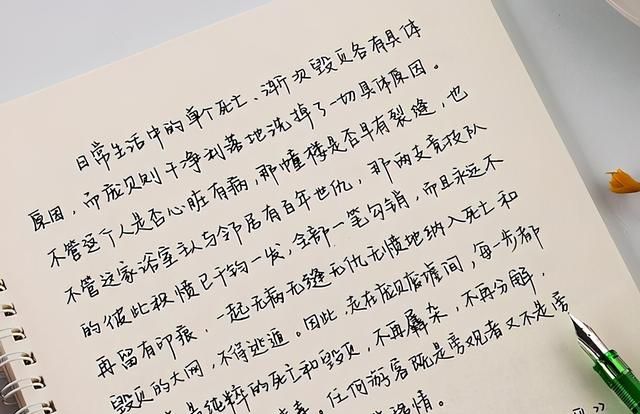 日常生活中的单个死亡、渐次毁灭各有具体
原因，而庞贝则干净利落地洗掉了一切具体原因。
不管这个人是否心脏有病，那幢楼是否早有裂缝，也
不管这家浴室主人与邻居有百年世仇，那两支竞技队
的彼此积愤已千钧一发，全部一笔勾销，而且永远不
再留有印痕，一起无病无缝无仇无愤地纳入死亡和
毁灭的大网，不得逃遁。因此，走在庞贝废墟间，每一步都
是纯粹的死亡和毁灭，不再羼杂，不再分解，
。任何游客既是旁观者又不是旁
情。